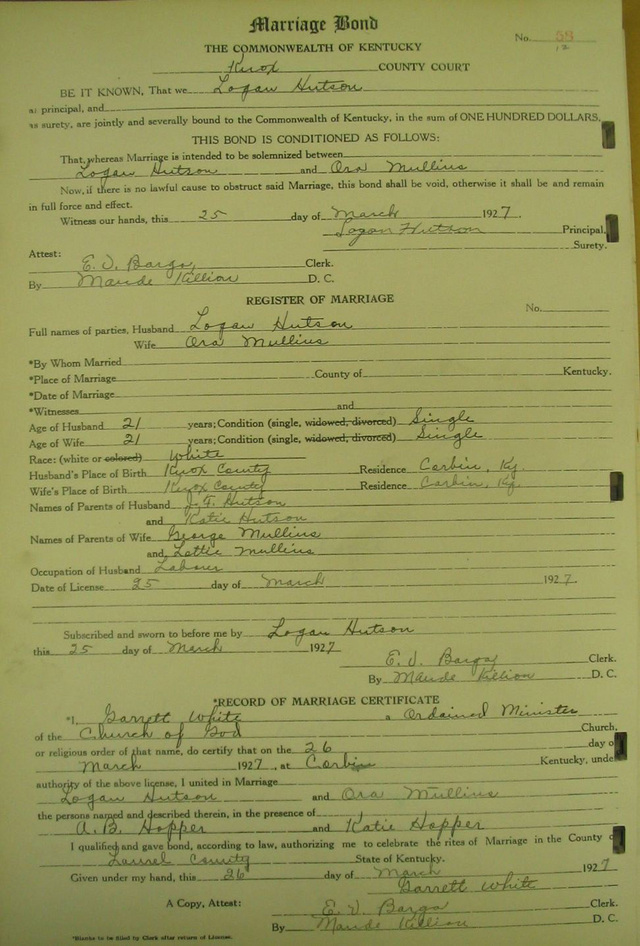 Marriage Bond
No. 58
12
THE COMMONWEALTH OF KENTUCKY
Knox COUNTY COURT
BE IT KNOWN, That we Logan Hutson
as principal, and
as surety, are jointly and severally bound to the Commonwealth of Kentucky, in the sum of ONE HUNDRED DOLLARS.
THIS BOND IS CONDITIONED AS FOLLOWS:
That, whereas Marriage is intended to be solemnized between
Logan Hutson and Ora Mullins
Now, if there is no lawful cause to obstruct said Marriage, this bond shall be void, otherwise it shall be and remain
in full force and effect.
Witness our hands, this 25 day of March 1927
Logan Hutson Principal.
Surety.
Attest:
E. V. Bargo Clerk.
By Maude Killion D. C.
REGISTER OF MARRIAGE
No.
Full names of parties, Husband Logan Hutson
Wife Ora Mullins
*By Whom Married
*Place of Marriage County of Kentucky.
*Date of Marriage
*Witnesses and
Age of Husband 21 years; Condition (single, widowed, divorced) Single
Age of Wife 21 years; Condition (single, widowed, divorced) Single
Race: (white or colored) White
Husband's Place of Birth Knox County Residence Corbin, Ky.
Wife's Place of Birth Knox County Residence Corbin, Ky.
Names of Parents of Husband J. F. Hutson
and Katie Hutson
Names of Parents of Wife George Mullins
and Lettie Mullins
Occupation of Husband Laborer
Date of License 25 day of March 1927
Subscribed and sworn to before me by Logan Hutson
this 25 day of March 1927
E. V. Bargo Clerk.
By Maude Killion D. C.
*RECORD OF MARRIAGE CERTIFICATE
*I, Garrett White a Ordained Minister
of the Church of God Church,
or religious order of that name, do certify that on the 26 day o
March 1927, at Corbin Kentucky, unde
authority of the above license, I united in Marriage
Logan Hutson and Ora Mullins
the persons named and described therein, in the presence of
A. B. Hopper and Katie Hopper
I qualified and gave bond, according to law, authorizing me to celebrate the rites of Marriage in the County o
Laurel County State of Kentucky.
Given under my hand, this 26 day of March 1927
Garrett White
A Copy, Attest: E. V. Bargo
By Maude Killion
*Blanks to be filed by Clerk after return of License.